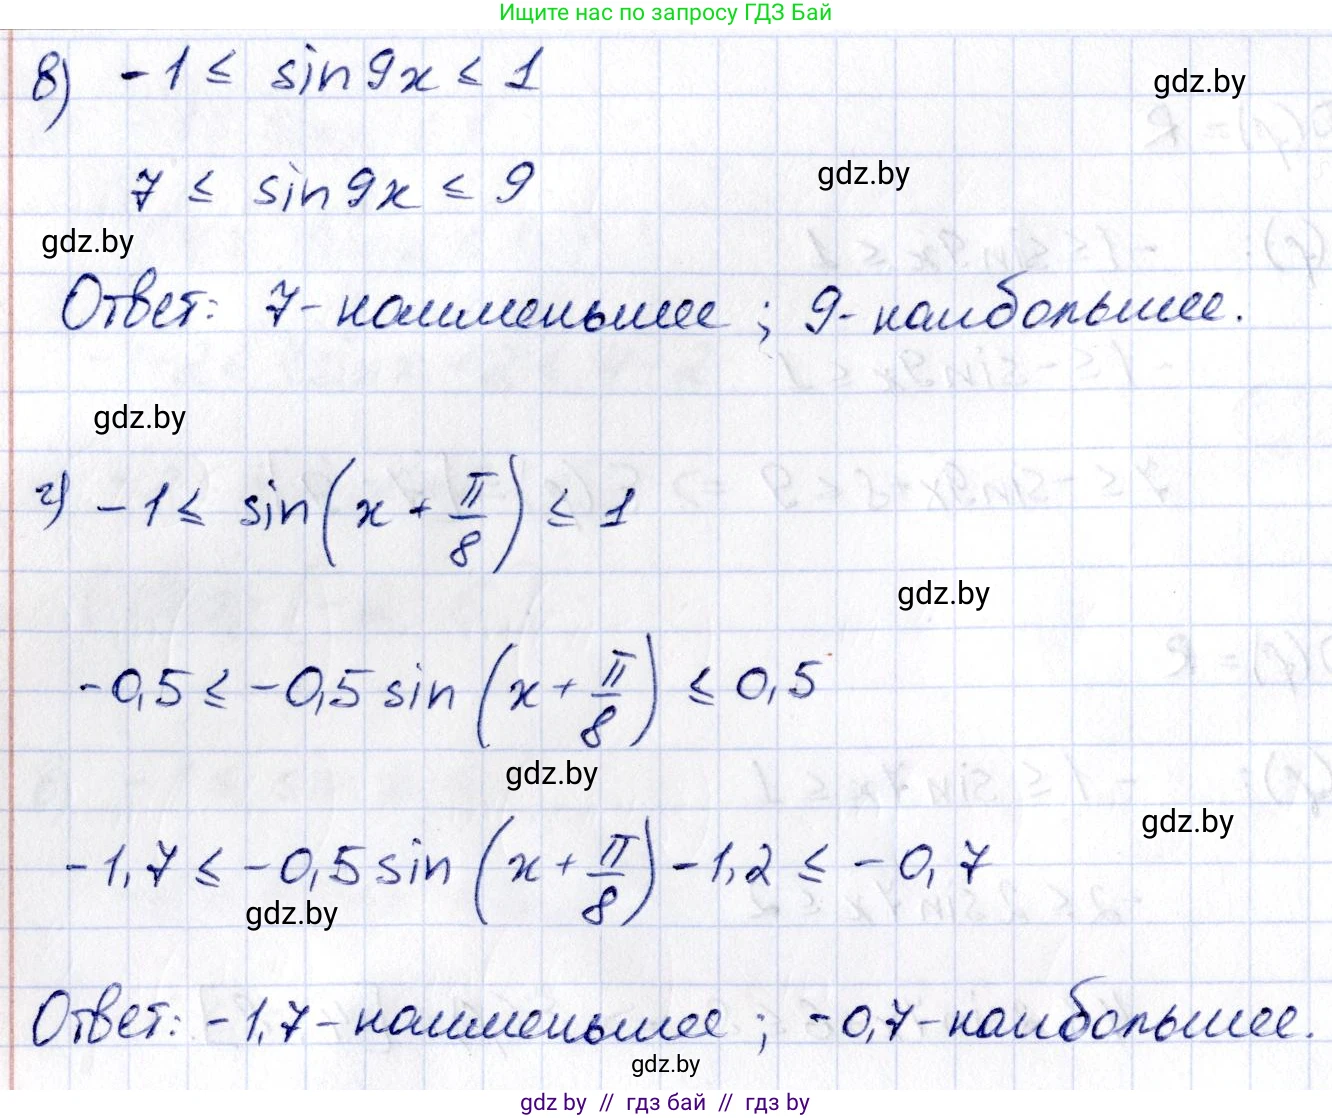 Ищите нас по запросу ГДЗ Бай
в) -1 ≤ sin 9x ≤ 1
gdz.by
7 ≤ sin 9x ≤ 9
gdz.by
gdz.by
Ответ: 7 - наименьшее ; 9 - наибольшее.
gdz.by
г) -1 ≤ sin(x + π/8) ≤ 1
gdz.by
-0,5 ≤ -0,5 sin(x + π/8) ≤ 0,5
gdz.by
gdz.by
-1,7 ≤ -0,5 sin(x + π/8) - 1,2 ≤ -0,7
gdz.by
Ответ: -1,7 - наименьшее ; -0,7 - наибольшее.
gdz.by
gdz by // гдз бай // гдз by